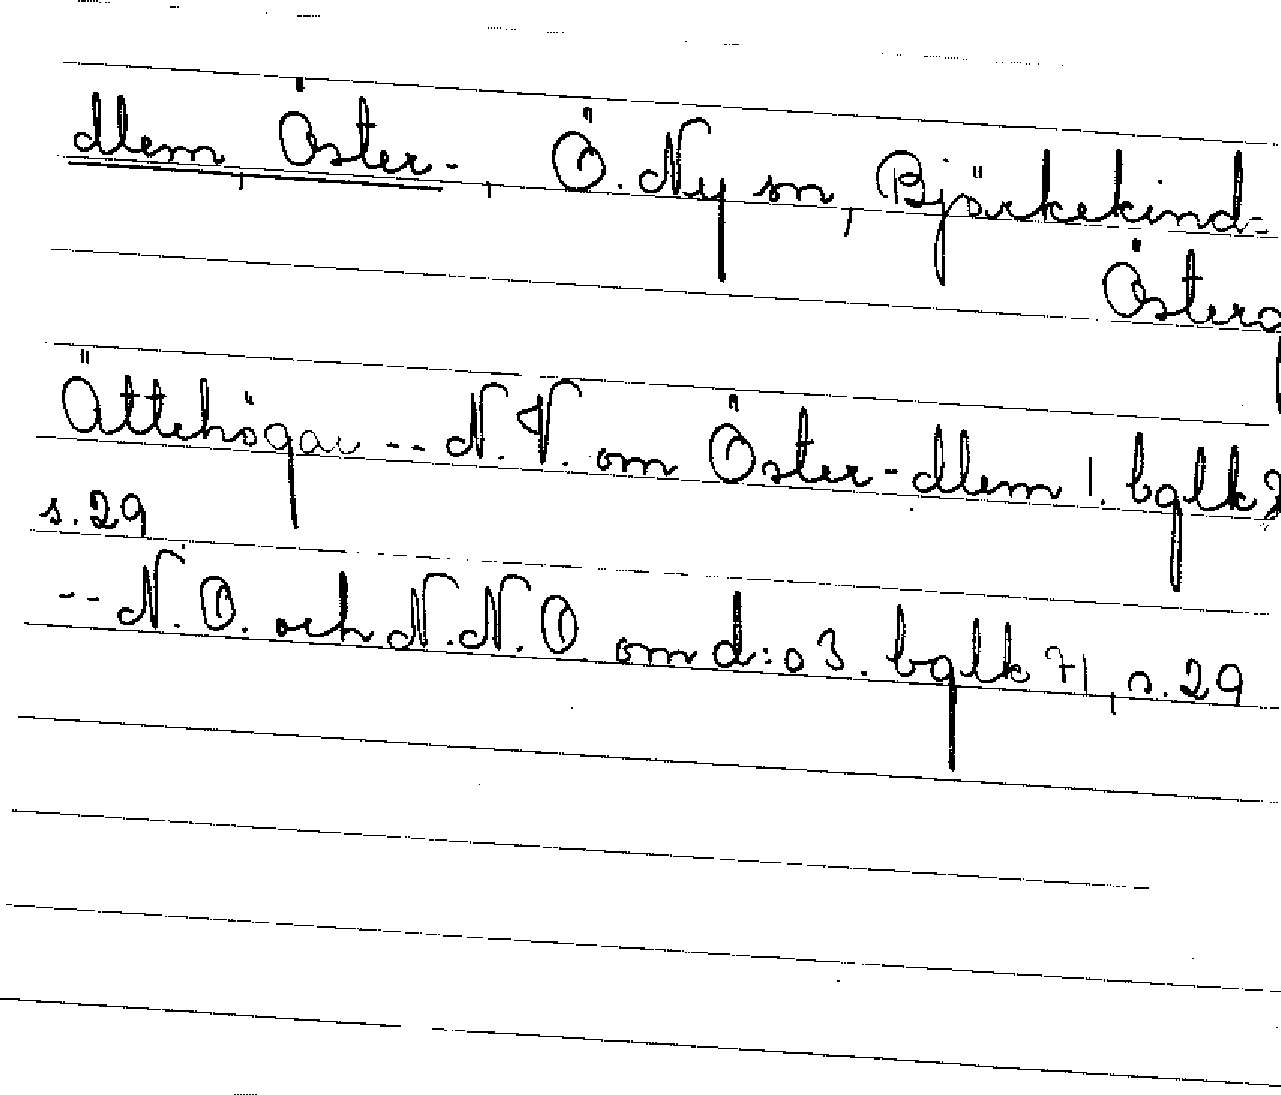 dlem, Öster-, Ö. Ny sn, Björkekind-
Österg
Ättehögar -- N.V. om Öster-dlem 1. bglk
s.29
-- N.O. och N.N.O om d:o 3. bglk 71, s.29